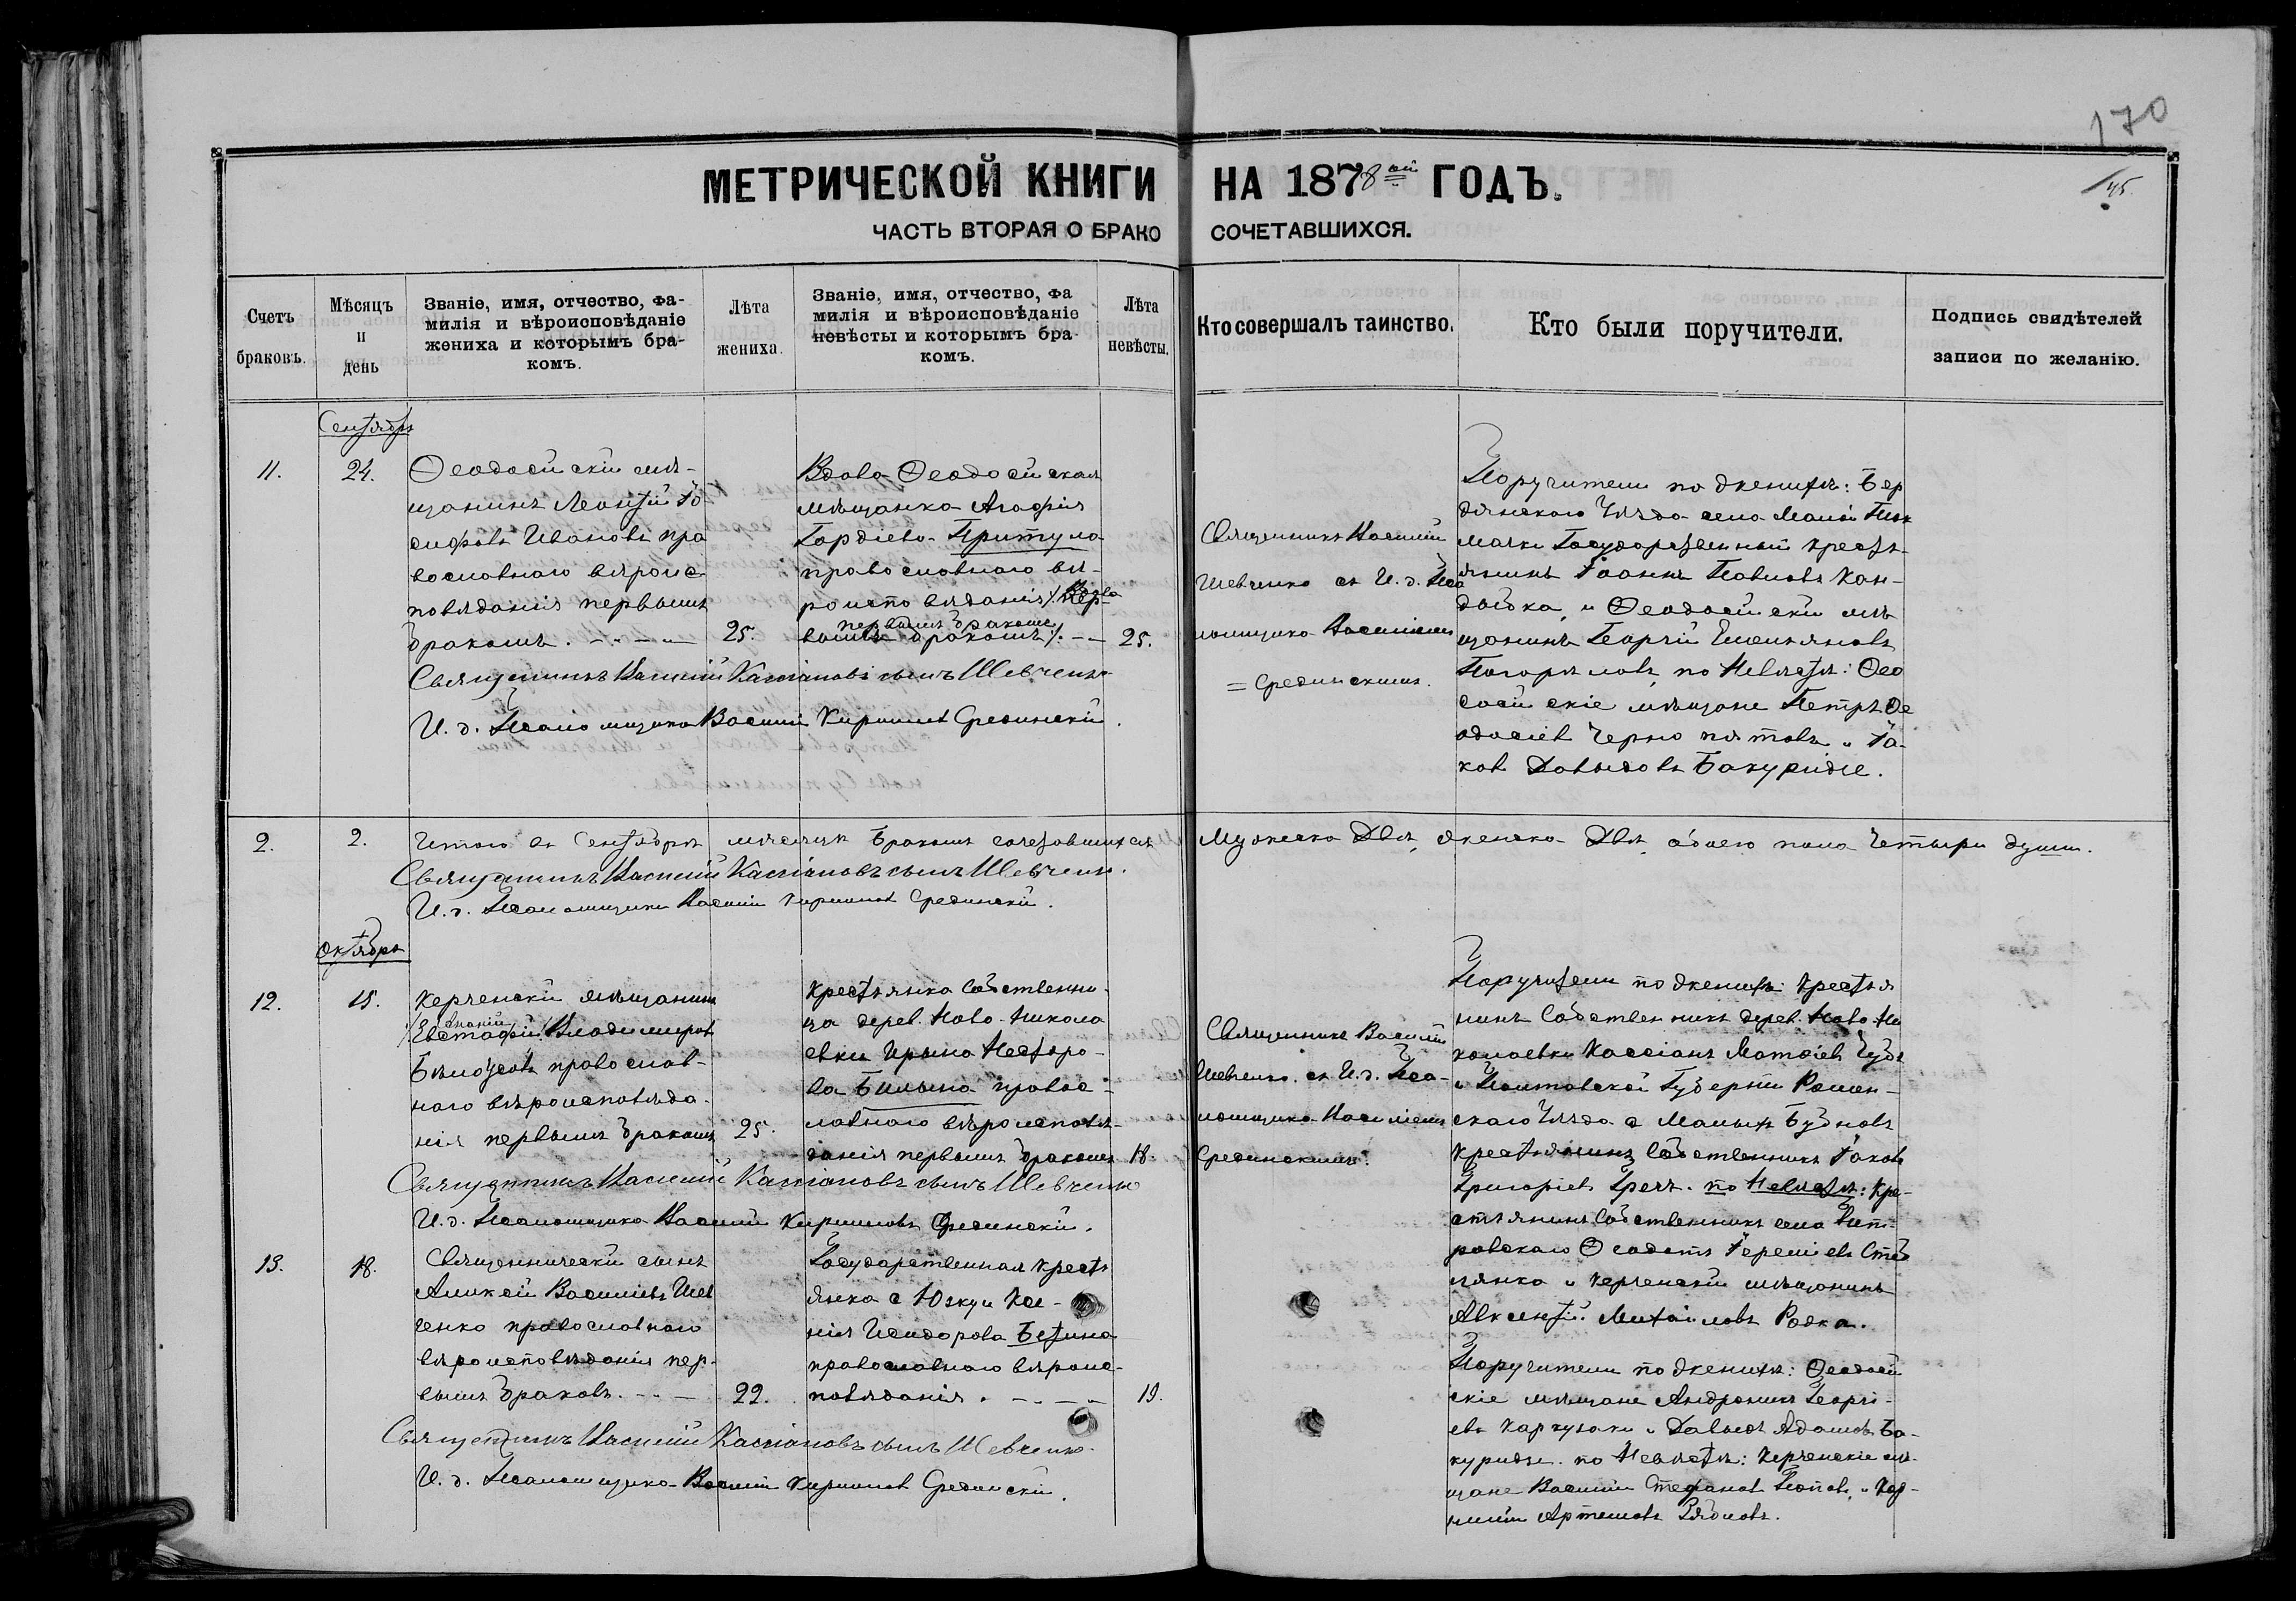 170
МЕТРИЧЕСКОЙ КНИГИ НА 1878ой ГОДЪ.
45.
ЧАСТЬ ВТОРАЯ О БРАКО СОЧЕТАВШИХСЯ.
Счетъ браковъ.
Мѣсяцъ и день
Званіе, имя, отчество, фа-
милія и вѣроисповѣданіе
жениха и которымъ бра-
комъ.
Лѣта жениха
Званіе, имя, отчество, фа
милія и вѣроисповѣданіе
невѣсты и которымъ бра-
комъ.
Лѣта невѣсты.
Кто совершалъ таинство.
Кто были поручители.
Подпись свидѣтелей
записи по желанію.
Сентябрь
11.
24.
Ѳеодосійскій мѣ-
щанинъ Леонтій Іо-
сифовъ Ивановъ пра
вославнаго вѣроис
повѣданія первымъ
бракомъ.
25.
Вдова Ѳеодосійская
мѣщанка Агафія
Гордіева Притула
православнаго вѣ-
роисповѣданія
первымъ бракомъ
вымъ бракомъ
25.
Священникъ Василій
Шевченко съ И. д. Пса
ломщика Василіемъ
= Срединскимъ.
Поручители по женихѣ: Бер
дянскаго Уѣзда села Малой
Государственный кресть
янинъ Іоаннъ Павловъ Кан-
дыбка, и Ѳеодосійскій мѣ
щанинъ Георгій Емельяновъ
Погорѣловъ, по Невѣстѣ: Ѳео
досійскіе мѣщане Петръ Ѳе
одосіевъ Чернопятовъ и Іа-
ковъ Давыдовъ Бакуридзе.
Священникъ Василій Кассіановъ сынъ Шевченко
И. д. Псаломщика Василій Кирилловъ Срединскій.
2.
2.
Итого въ Сентябрѣ мѣсяцѣ бракомъ сочетавшихся Мужеска Двѣ, женска Двѣ, обоего пола Четыри души.
Священникъ Василій Кассіановъ сынъ Шевченко.
И. д. Псаломщика Василій Кирилловъ Срединскій.
Октябрь
12.
15.
Керченскій мѣщанинъ
Евстафій Владимировъ
Бѣлоусовъ православ-
наго вѣроисповѣда-
нія первымъ бракомъ
25.
Крестьянка Собственни-
ца дерев. Ново-Никола
евки Ирина Несторо-
ва Билына правос-
лавнаго вѣроисповѣ-
данія первымъ бракомъ
18.
Священникъ Василій
Шевченко съ И. д. Пса-
ломщика Василіемъ
Срединскимъ.
Поручители по женихѣ: Крестья
нинъ Собственникъ дерев. Ново-Ни
колаевки Кассіанъ Матѳіевъ Чубъ
и Полтавской Губерніи Ромен-
скаго Уѣзда с Малыхъ Будковъ
Крестьянинъ Собственникъ Іаковъ
Григоріевъ Грекъ. по Невѣстѣ: Кре-
стьянинъ Собственникъ села Пет-
ровскаго Ѳеодотъ Іереміевъ Стеб
лянко и Керченскій мѣщанинъ
Авксентій Михайловъ Родка.
Священникъ Василій Кассіановъ сынъ Шевченко
И. д. Псаломщика Василій Кирилловъ Срединскій.
13.
18.
Священническій сынъ
Алексѣй Васильевъ Шев
ченко православнаго
вѣроисповѣданія пер-
вымъ бракомъ.
22.
Государственная кресть
янка с Юзкуи Ксе-
нія Исидорова Бетина
православнаго вѣроис-
повѣданія.
19.
Поручители по женихѣ: Ѳеодосій
скіе мѣщане Андроникъ Георгі-
евъ Каркузаки и Давыдъ Адамовъ Ба-
куридзе. по Невѣстѣ: Керченскіе мѣ-
щане Василій Стефановъ Поповъ, и
Артемовъ Рябловъ.
Священникъ Василій Кассіановъ сынъ Шевченко.
И. д. Псаломщика Василій Кирилловъ Срединскій.